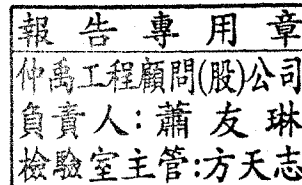 報告專用章
仲禹工程顧問(股)公司
負責人:蕭友琳
檢驗室主管:方天志